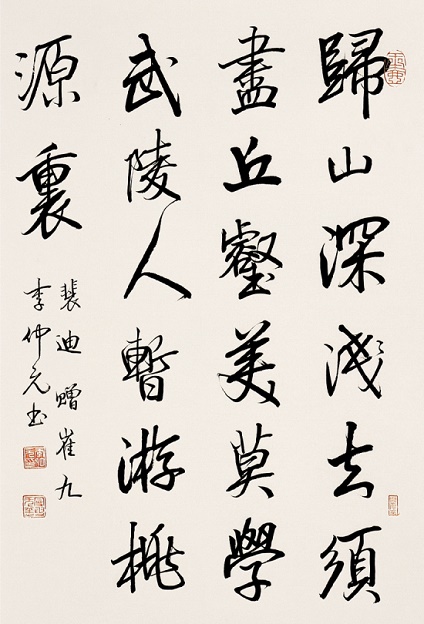 歸山深淺去須
盡丘壑美莫學
武陵人暫游桃
源裏
裴迪贈崔九
李仲元书